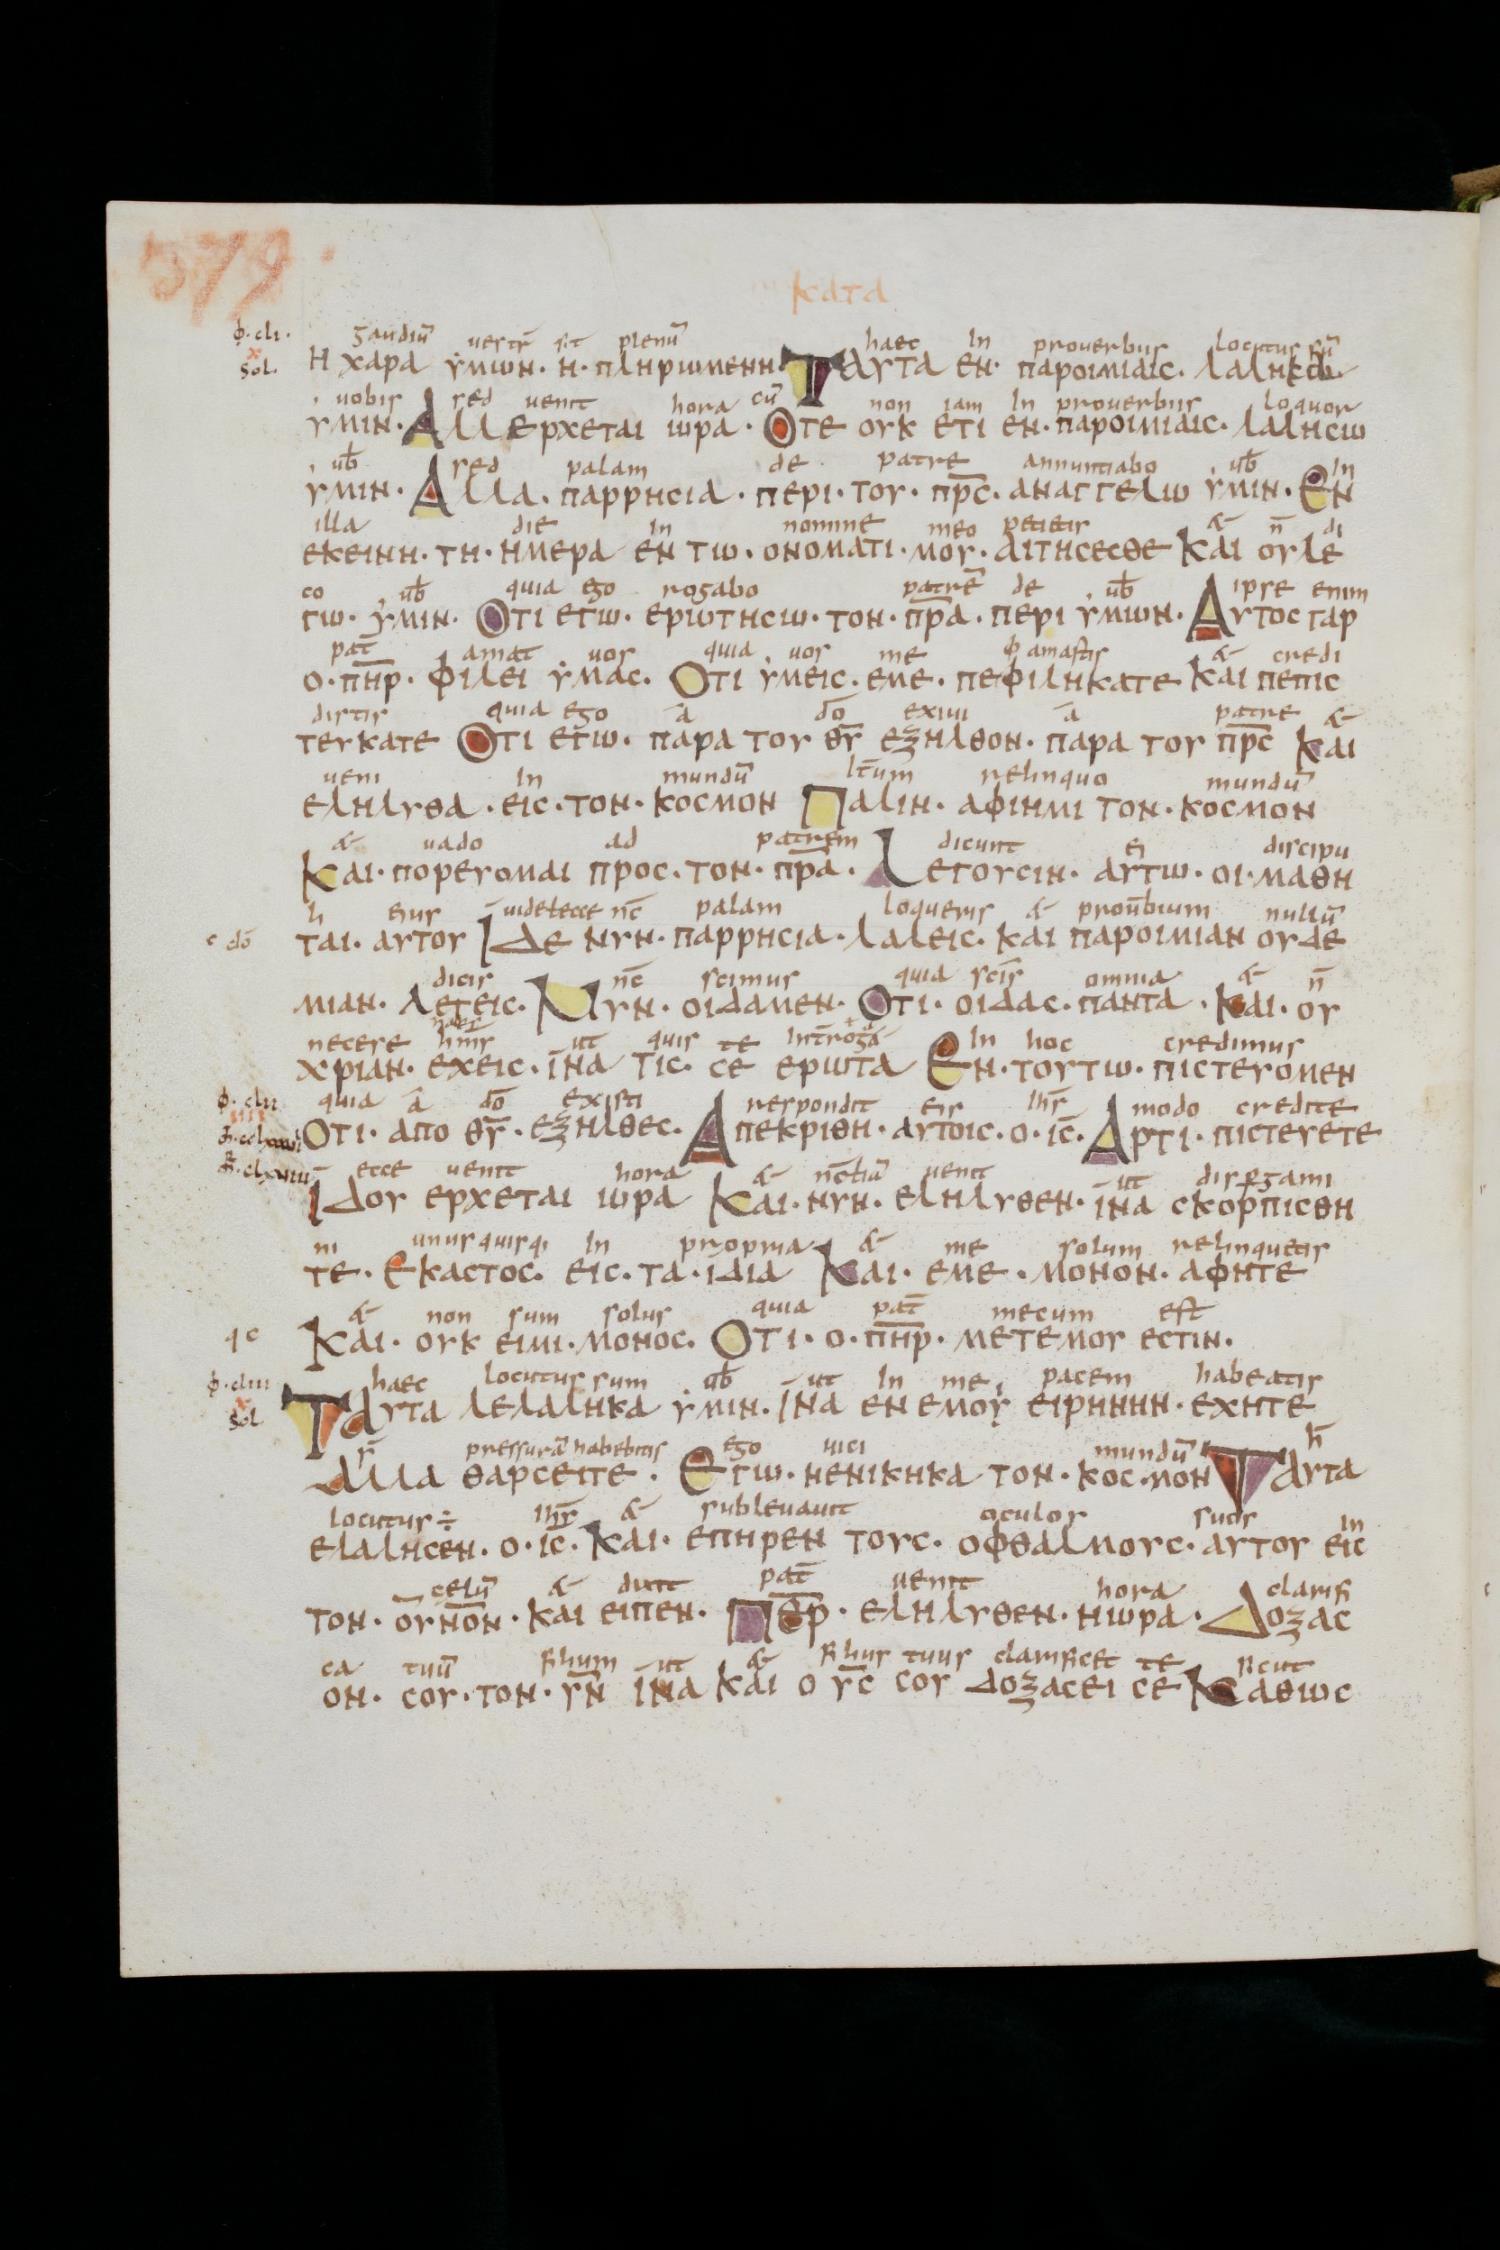 379.
κατα
φ·cli· gaudiū vestr̄ sit plenū haec In proverbiis locutus sū
x sol.
Η χαρα ὑμων· Η· πληρωμενη Ταυτα εν· παροιμιαις· λαληκα
vobis sed venit hora cū non iam In proverbiis loquor
υμιν· Αλλ ερχεται ωρα· Οτε ουκ ετι εν· παροιμιαις· λαλησω
ub̄ sed palam de patre annuntiabo ub̄ In
υμιν· Αλλα· παρρησια· περι· του· πρ̄ς· αναγγελιω υμιν· Εν
illa die In nomine meo petietis & n̄ di
εκεινη· τη· ημερα εν τω· ονοματι· μου· αιτησεσθε Και ου λε
co ub̄ quia ego rogabo patrē de ub̄ ipse enim
γω· υμιν· Οτι εγω· ερωτησω· τον· πρ̄α· περι υμων· Αυτος γαρ
pat̄ amat vos quia vos me amastis & credi
ο· πη̄ρ· φιλει υμας· Οτι υμεις· εμε· πεφιληκατε Και πεπις
distis quia ego ā dō exivi ā patre &
τευκατε Οτι εγω· παρα του θῡ εξηλθον· παρα του πρ̄ς Και
veni In mundū It̄um relinquo mundū
εληλυθα· εις· τον· κοσμον Παλιν· αφιημι τον· κοσμον
& vado ad patrem dicunt ei discipu
Και· πορευομαι προς· τον· πρ̄α· Λεγουσιν· αυτω· οι· μαθη
li eius videlecce nc̄ palam loqueris & prov̄bium nullū
c dō
ται· αυτου Ιδε νυν· παρρησια· λαλεις· και παροιμιαν ουδε
dicis nc̄ scimus quia scis omnia & n̄
μιαν· λεγεις· Νυν· οιδαμεν· Οτι· οιδας· παντα· Και· ου
necese ut quis te Int̄roga In hoc credimus
χριαν· εχεις· ινα τις· σε ερωτα Εν· τουτω· πιστευομεν
φ· clii quia ā dō existi respondit eis Ihs̄ modo credite
Οτι· απο θῡ· εξηλθες· Απεκριθη· αυτοις· ο· ις̄· Αρτι· πιστευετε
ecce venit hora & venit ut dispgami
Ιδου ερχεται ωρα Και· νυν· εληλυθεν· ινα σκορπισθη
ni unusquisq; In propria & me solum relinquetis
τε· Εκαστος· εις· τα· ιδια Και· εμε· μονον· αφητε
& non sum solus quia pat̄ mecum est
q c
Και· ουκ ειμι· μονος· Οτι· ο· πη̄ρ· μετεμου εστιν·
φ·cliii haec locutus sum ub̄ ut In me pacem habeatis
x sol
Ταυτα λελαληκα υμιν· Ινα εν εμου ειρηνην· εχητε
s̄ pressurā habebitis ego vici mundū h̄
αλλα θαρσειτε· Εγω· νενικηκα τον· κος·μον Ταυτα
locutus ÷ Ihs̄ & sublevavit oculos suos In
ελαλησεν· ο· ις̄· Και· επηρεν τους· οφθαλμους· αυτου εις
celū & dixit pat̄ venit hora clarifi
τον· ουν̄ον· και ειπεν· Πε̄ρ· εληλυθεν· ηωρα· Δοξας
ca tuū filium ut & filius tuus clarificet te sicut
ον· σου· τον· ῡν ινα και ο ῡς σου δοξασει σε Καθως